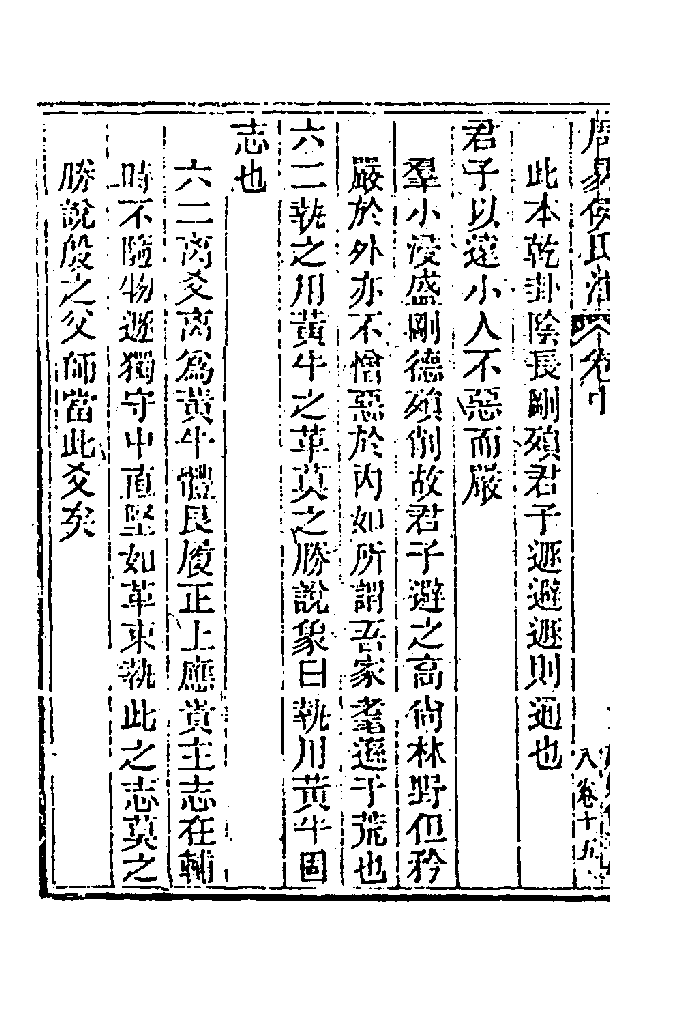 周易侯氏注　卷中
八卷十五
此本乾卦陰長剛殞君子遯避遯則通也
君子以遠小人不惡而嚴
羣小浸盛剛德殞削故君子避之高尚林野但矜
嚴於外亦不憎惡於內如所謂吾家耄遜于荒也
六二執之用黃牛之革莫之勝說象曰執用黃牛固
志也
六二离爻离爲黃牛體艮履正上應貴主志在輔
時不隨物遯獨守中直堅如革束執此之志莫之
勝說殷之父師當此爻矣